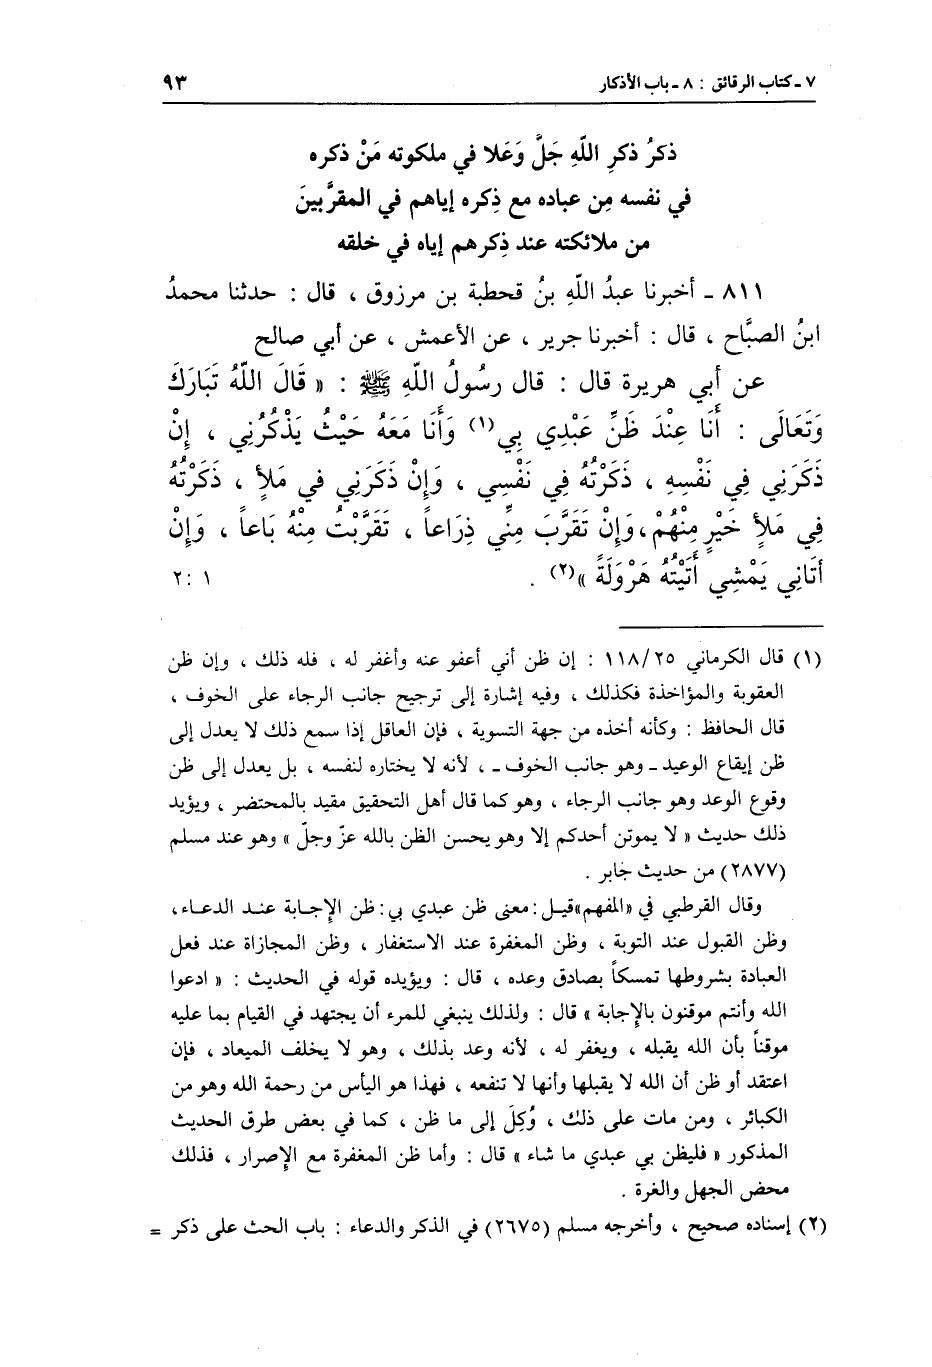 ٧ ـ كتاب الرقائق : ٨ ـ باب الأذكار ٩٣
ذكرُ ذكرِ اللّهِ جَلَّ وَعَلا في ملكوته مَنْ ذكره
في نفسه مِن عباده مع ذِكره إياهم في المقرَّبينَ
من ملائكته عند ذِكرهم إياه في خلقه
٨١١ ـ أخبرنا عبدُ اللّهِ بنُ قحطبة بن مرزوق ، قال : حدثنا محمدُ
ابنُ الصبَّاح ، قال : أخبرنا جرير ، عن الأعمش ، عن أبي صالح
عن أبي هريرة قال : قال رسُولُ اللّهِ ﷺ : « قَالَ اللّهُ تَبَارَكَ
وَتَعَالَى : أَنَا عِنْدَ ظَنِّ عَبْدِي بِي(١) وَأَنَا مَعَهُ حَيْثُ يَذْكُرُنِي ، إِنْ
ذَكَرَنِي فِي نَفْسِهِ ، ذَكَرْتُهُ فِي نَفْسِي ، وَإِنْ ذَكَرَنِي في مَلأٍ ، ذَكَرْتُهُ
فِي مَلأٍ خَيْرٍ مِنْهُمْ، وَإِنْ تَقَرَّبَ مِنِّي ذِرَاعاً ، تَقَرَّبْتُ مِنْهُ بَاعاً ، وَإِنْ
أَتَانِي يَمْشِي أَتَيْتُهُ هَرْوَلَةً »(٢) . ١ :٢
(١) قال الكرماني ١١٨/٢٥ : إن ظن أني أعفو عنه وأغفر له ، فله ذلك ، وإن ظن
العقوبة والمؤاخذة فكذلك ، وفيه إشارة إلى ترجيح جانب الرجاء على الخوف ،
قال الحافظ : وكأنه أخذه من جهة التسوية ، فإن العاقل إذا سمع ذلك لا يعدل إلى
ظن إيقاع الوعيد ـ وهو جانب الخوف ـ ، لأنه لا يختاره لنفسه ، بل يعدل إلى ظن
وقوع الوعد وهو جانب الرجاء ، وهو كما قال أهل التحقيق مقيد بالمحتضر ، ويؤيد
ذلك حديث « لا يموتن أحدكم إلا وهو يحسن الظن بالله عزّ وجلّ » وهو عند مسلم
(٢٨٧٧) من حديث جابر .
وقال القرطبي في «المفهم»قيل : معنى ظن عبدي بي : ظن الإجابة عند الدعاء،
وظن القبول عند التوبة ، وظن المغفرة عند الاستغفار ، وظن المجازاة عند فعل
العبادة بشروطها تمسكاً بصادق وعده ، قال : ويؤيده قوله في الحديث : « ادعوا
الله وأنتم موقنون بالإجابة » قال : ولذلك ينبغي للمرء أن يجتهد في القيام بما عليه
موقناً بأن الله يقبله ، ويغفر له ، لأنه وعد بذلك ، وهو لا يخلف الميعاد ، فإن
اعتقد أو ظن أن الله لا يقبلها وأنها لا تنفعه ، فهذا هو اليأس من رحمة الله وهو من
الكبائر ، ومن مات على ذلك ، وُكِلَ إلى ما ظن ، كما في بعض طرق الحديث
المذكور « فليظن بي عبدي ما شاء » قال : وأما ظن المغفرة مع الإصرار ، فذلك
محض الجهل والغرة .
(٢) إسناده صحيح ، وأخرجه مسلم (٢٦٧٥) في الذكر والدعاء : باب الحث على ذكر =